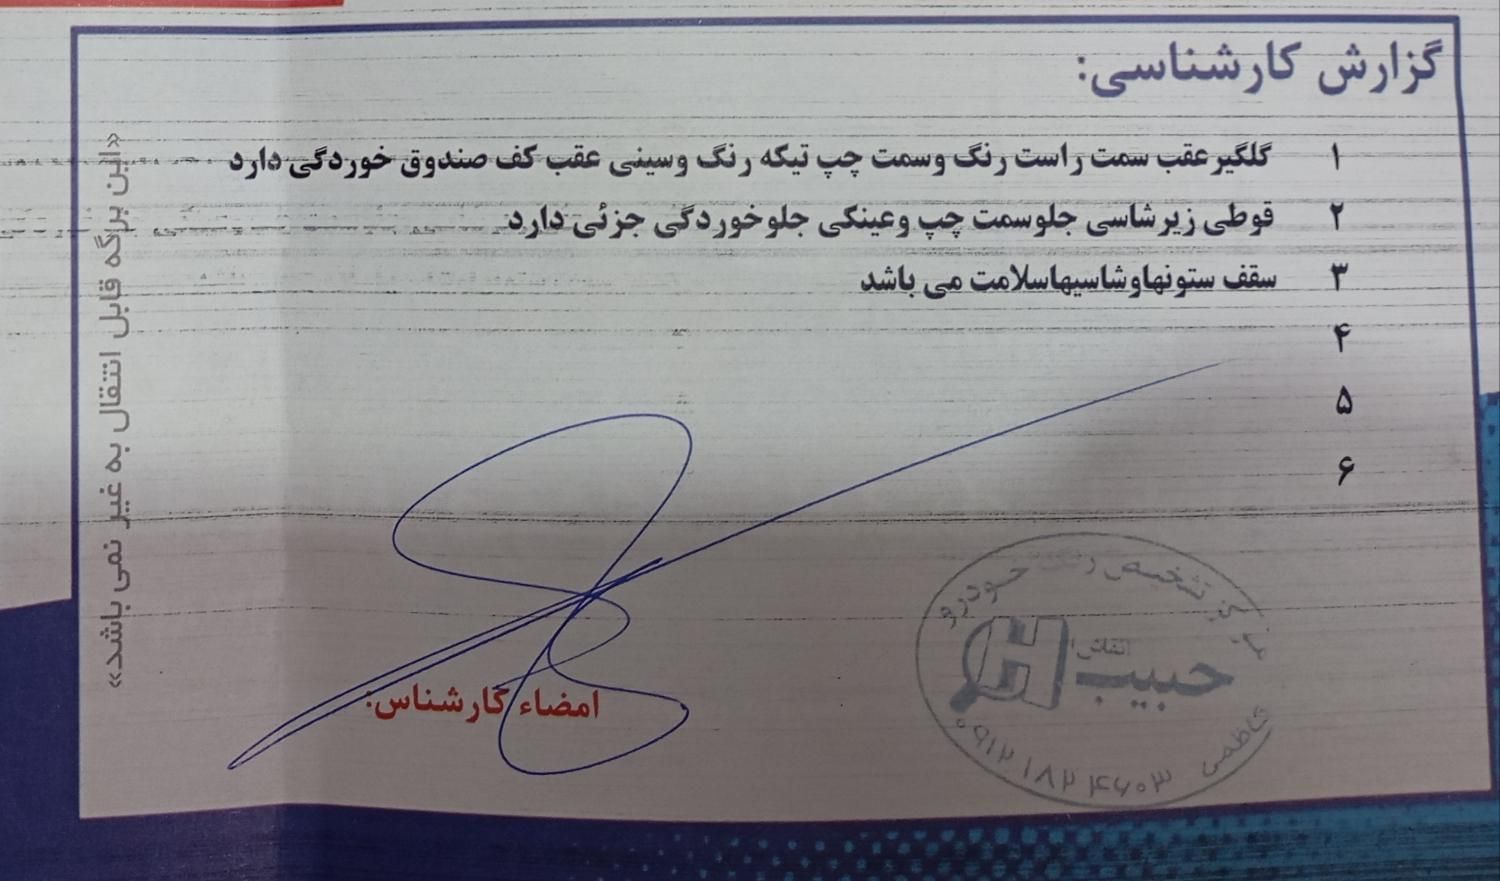 گزارش کارشناسی:
۱ گلگیرعقب سمت راست رنگ وسمت چپ تیکه رنگ وسینی عقب کف صندوق خوردگی دارد
۲ قوطی زیرشاسی جلوسمت چپ وعینکی جلوخوردگی جزئی دارد
۳ سقف ستونهاوشاسیهاسلامت می باشد
۴
۵
۶
«این برگه قابل انتقال به غیر نمی باشد»
امضاء کارشناس:
مرکز تشخیص رنگ خودرو
حبیب (نقاش)
کاظمی